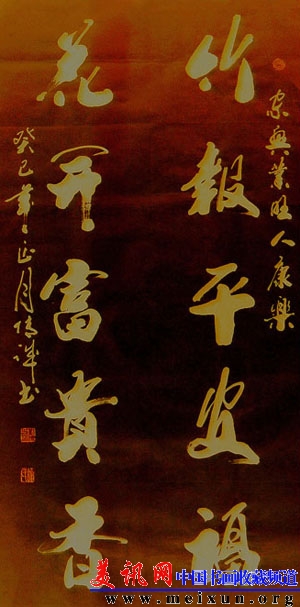 家興業旺人康樂
竹報平安福
花開富貴香
癸巳年正月傳洋書
美讯网
中国书画收藏频道
www.meixun.org